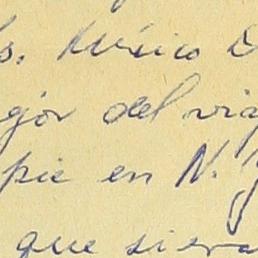 s. México D
jor del via
pie en N. Y
que siem